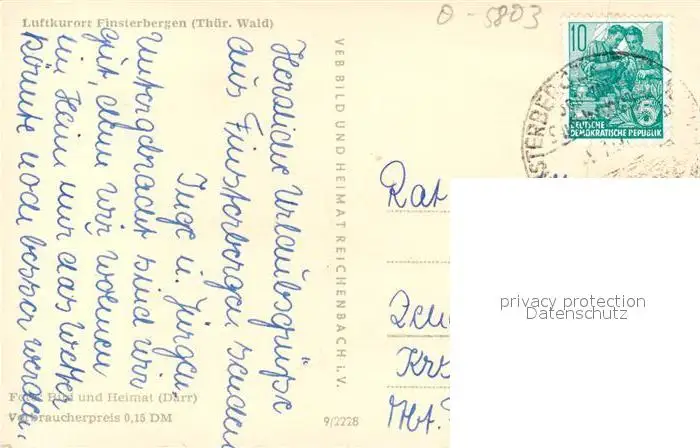 Luftkurort Finsterbergen (Thür. Wald)
0-5803
Herzliche Urlaubsgrüße
aus Finsterbergen senden
Inge u. Jürgen
Untergebracht sind wir
gut, denn wir wohnen
im Heim nur das Wetter
könnte noch besser werden.
Foto Bild und Heimat (Darr)
Verbraucherpreis 0,15 DM
VEB BILD UND HEIMAT REICHENBACH i. V.
9/2228
10
DEUTSCHE
DEMOKRATISCHE REPUBLIK
Rat
Krk
Abt.
privacy protection
Datenschutz